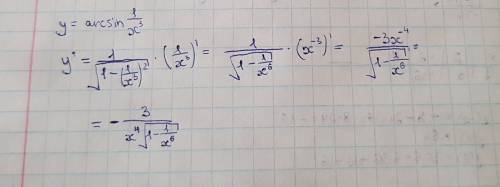 y = arcsin 1/x³
y' = 1/√(1-(1/x³)²) · (1/x³)' = 1/√(1-1/x⁶) · (x⁻³)' = -3x⁻⁴/√(1-1/x⁶) =
= - 3/(x⁴√(1-1/x⁶))